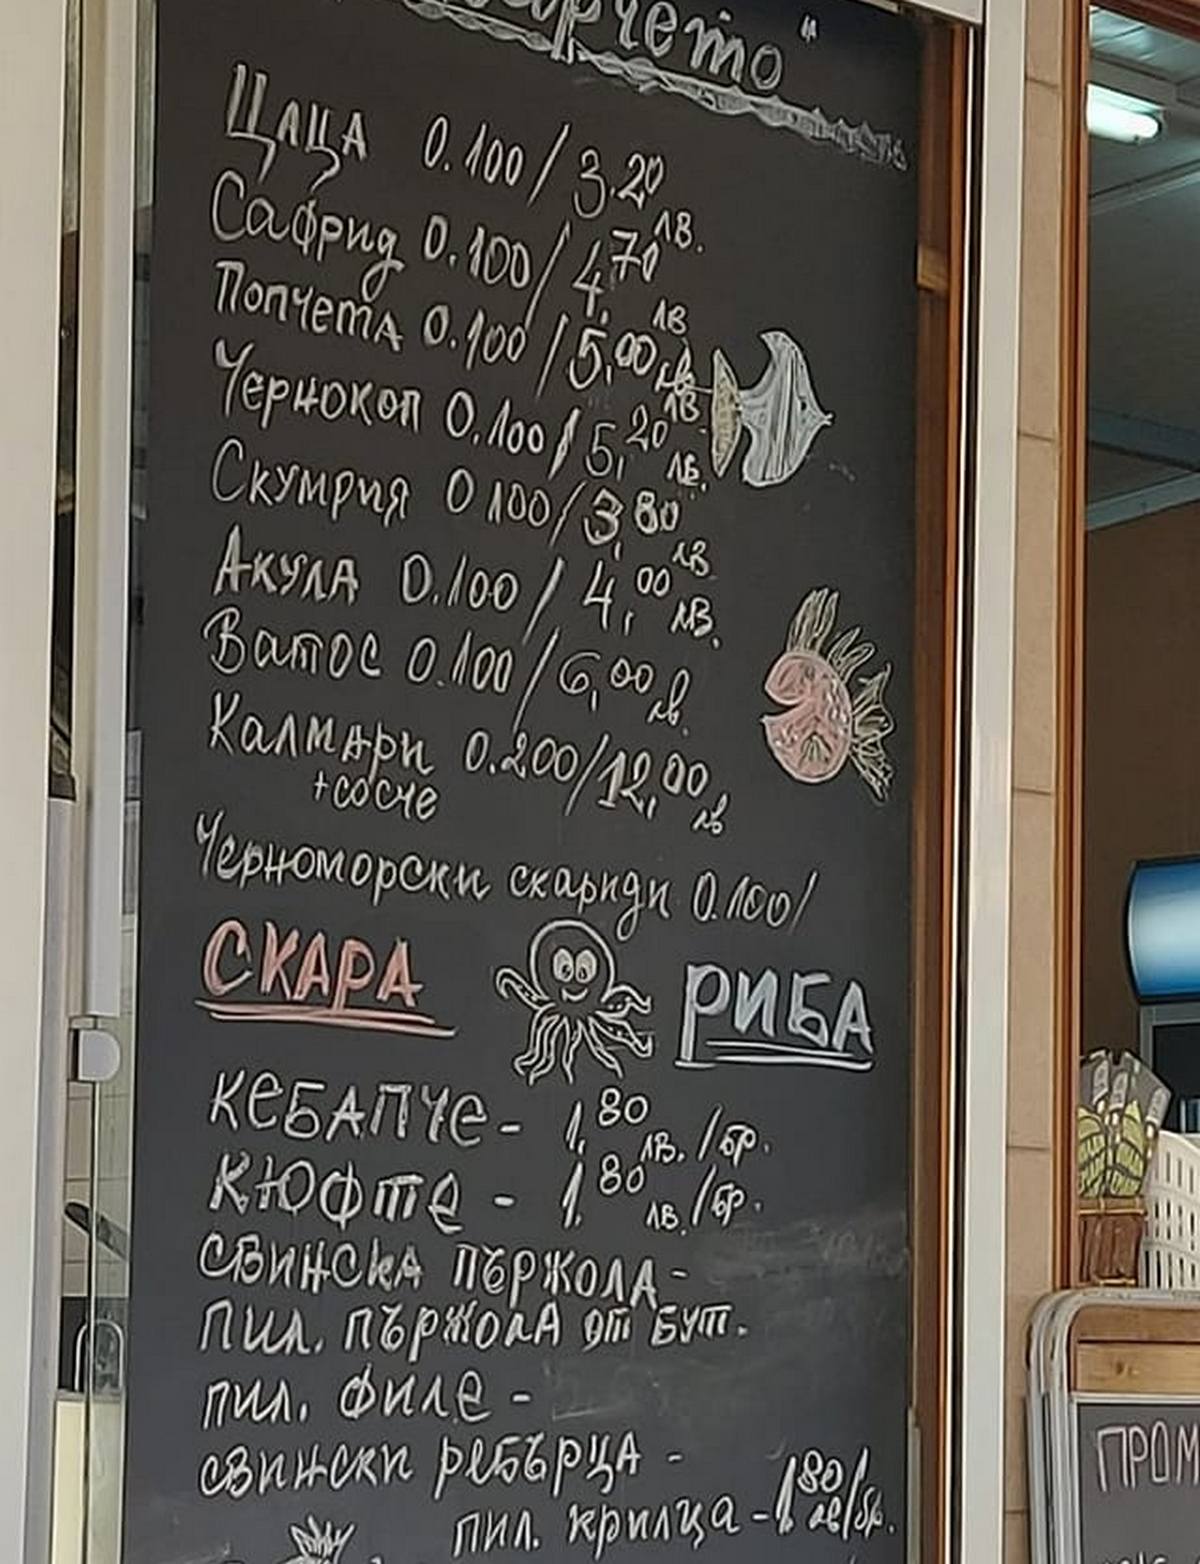 Цаца 0.100/3.20 лв.
Сафрид 0.100/4,70 лв
Попчета 0.100/5,00 лв
Чернокоп 0.100/5,20 лв.
Скумрия 0 100/3,80 лв
Акула 0.100/4,00 лв.
Ватос 0.100/6,00 лв.
Калмари 0.200/12,00 лв
+сосче
Черноморски скариди 0.100/
СКАРА РИБА
КЕБАПЧЕ - 1,80 лв./бр.
КЮФТЕ - 1,80 лв./бр.
СВИНСКА ПЪРЖОЛА -
ПИЛ. ПЪРЖОЛА ОТ БУТ.
ПИЛ. ФИЛЕ -
СВИНСКИ РЕБЪРЦА -
ПИЛ. крилца - 1,80 лв/бр.